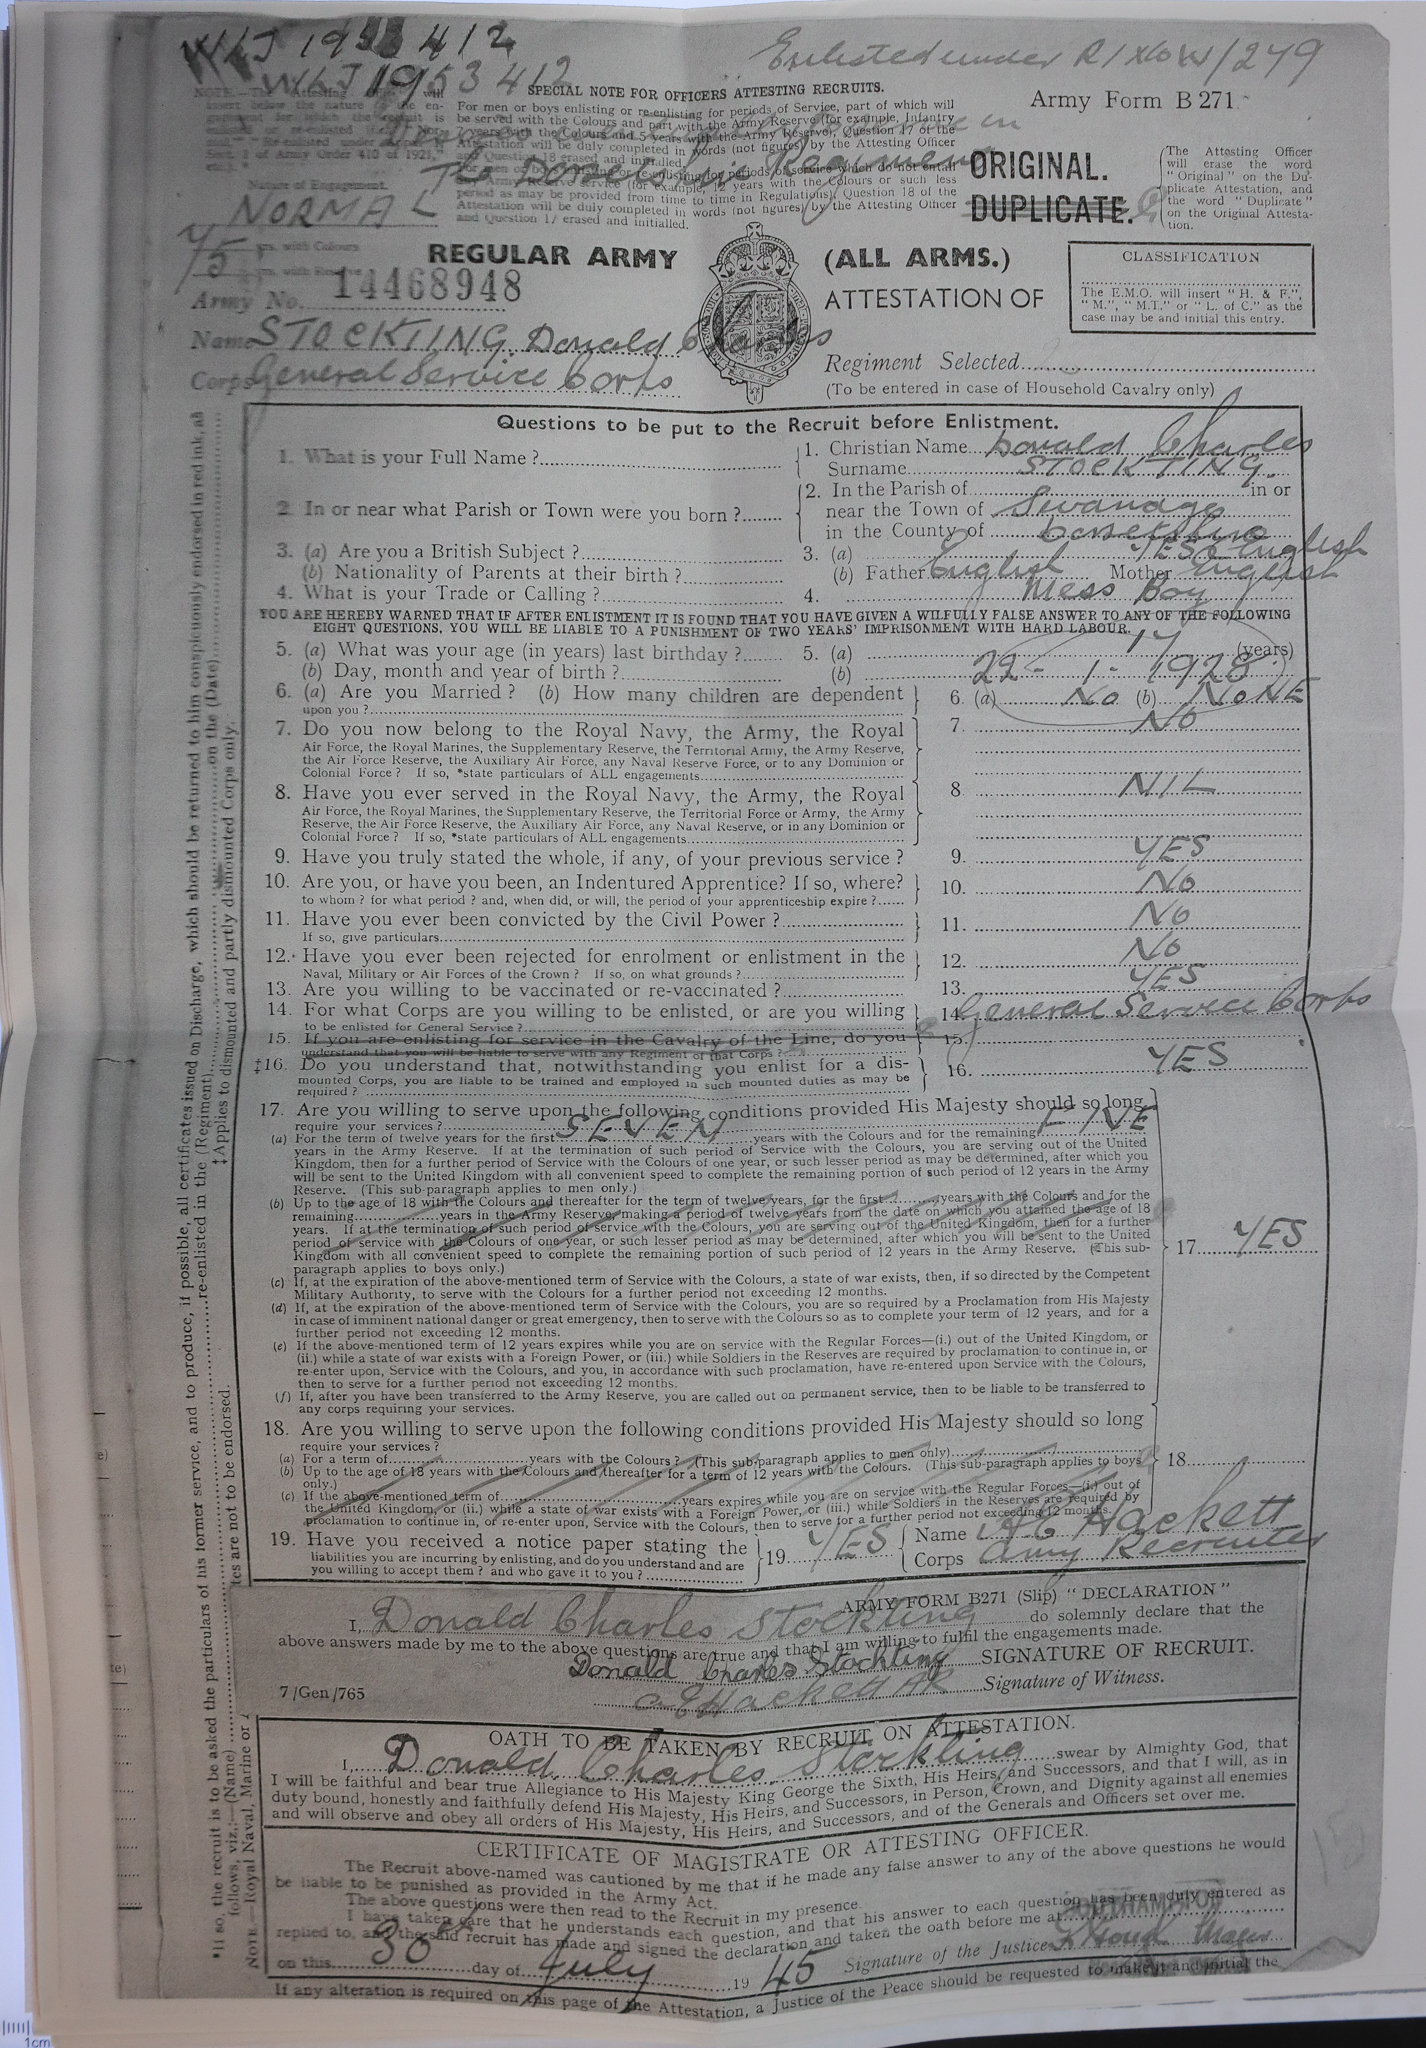 WLJ 1953412
WLJ 1953412
Enlisted under
SPECIAL NOTE FOR OFFICERS ATTESTING RECRUITS.
Army Form B 271
For men or boys enlisting or re-enlisting for periods of Service, part of which will
be served with the Colours and part with the Army Reserve (for example, Infantry
7 years with the Colours and 5 years with the Army Reserve), Question 17 of the
Attestation will be duly completed in words (not figures) by the Attesting Officer
and Question 18 erased and initialled.
For men or boys enlisting or re-enlisting for periods of service which do not entail
Army Reserve service (for example, 12 years with the Colours or such less
period as may be provided from time to time in Regulations), Question 18 of the
Attestation will be duly completed in words (not figures) by the Attesting Officer
and Question 17 erased and initialled.
The Dorsetshire Regiment
ORIGINAL.
DUPLICATE.
The Attesting Officer
will erase the word
"Original" on the Du-
plicate Attestation, and
the word "Duplicate"
on the Original Attesta-
tion.
Nature of Engagement.
NORMAL
7/5 yrs. with Colours
yrs. with Reserve
REGULAR ARMY
(ALL ARMS.)
ATTESTATION OF
CLASSIFICATION
The E.M.O. will insert "H. & F.",
"M.", "M.T." or "L. of C." as the
case may be and initial this entry.
Army No. 14468948
Name STOCKTING. Donald Charles
Corps General Service Corps
Regiment Selected
(To be entered in case of Household Cavalry only)
Questions to be put to the Recruit before Enlistment.
1. What is your Full Name ? 1. Christian Name Donald Charles
Surname STOCKTING.
2. In or near what Parish or Town were you born ? 2. In the Parish of in or
near the Town of Swanage
in the County of Dorsetshire
3. (a) Are you a British Subject ? 3. (a) YES English
(b) Nationality of Parents at their birth ? (b) Father English Mother English
4. What is your Trade or Calling ? 4. Mess Boy
YOU ARE HEREBY WARNED THAT IF AFTER ENLISTMENT IT IS FOUND THAT YOU HAVE GIVEN A WILFULLY FALSE ANSWER TO ANY OF THE FOLLOWING
EIGHT QUESTIONS, YOU WILL BE LIABLE TO A PUNISHMENT OF TWO YEARS' IMPRISONMENT WITH HARD LABOUR.
5. (a) What was your age (in years) last birthday ? 5. (a) 17 (years)
(b) Day, month and year of birth ? (b) 22 - 1 - 1928
6. (a) Are you Married ? (b) How many children are dependent 6. (a) No (b) NONE
upon you ?
7. Do you now belong to the Royal Navy, the Army, the Royal 7. NO
Air Force, the Royal Marines, the Supplementary Reserve, the Territorial Army, the Army Reserve,
the Air Force Reserve, the Auxiliary Air Force, any Naval Reserve Force, or to any Dominion or
Colonial Force ? If so, *state particulars of ALL engagements
8. Have you ever served in the Royal Navy, the Army, the Royal 8 NIL
Air Force, the Royal Marines, the Supplementary Reserve, the Territorial Force or Army, the Army
Reserve, the Air Force Reserve, the Auxiliary Air Force, any Naval Reserve, or in any Dominion or
Colonial Force ? If so, *state particulars of ALL engagements
9. Have you truly stated the whole, if any, of your previous service ? 9. YES
10. Are you, or have you been, an Indentured Apprentice? If so, where? 10. No
to whom ? for what period ? and, when did, or will, the period of your apprenticeship expire ?
11. Have you ever been convicted by the Civil Power ? 11. NO
If so, give particulars
12. Have you ever been rejected for enrolment or enlistment in the 12. NO
Naval, Military or Air Forces of the Crown ? If so, on what grounds ?
13. Are you willing to be vaccinated or re-vaccinated ? 13. YES
14. For what Corps are you willing to be enlisted, or are you willing 14. General Service Corps
to be enlisted for General Service ?
15. If you are enlisting for service in the Cavalry of the Line, do you 15.
understand that you will be liable to serve with any Regiment of that Corps ?
‡16. Do you understand that, notwithstanding you enlist for a dis- 16. YES
mounted Corps, you are liable to be trained and employed in such mounted duties as may be
required ?
17. Are you willing to serve upon the following conditions provided His Majesty should so long
require your services ?
(a) For the term of twelve years for the first SEVEN years with the Colours and for the remaining FIVE
years in the Army Reserve. If at the termination of such period of Service with the Colours, you are serving out of the United
Kingdom, then for a further period of Service with the Colours of one year, or such lesser period as may be determined, after which you
will be sent to the United Kingdom with all convenient speed to complete the remaining portion of such period of 12 years in the Army
Reserve. (This sub-paragraph applies to men only.)
(b) Up to the age of 18 with the Colours and thereafter for the term of twelve years, for the first years with the Colours and for the
remaining years in the Army Reserve, making a period of twelve years from the date on which you attained the age of 18
years. If at the termination of such period of service with the Colours, you are serving out of the United Kingdom, then for a further
period of service with the Colours of one year, or such lesser period as may be determined, after which you will be sent to the United
Kingdom with all convenient speed to complete the remaining portion of such period of 12 years in the Army Reserve. (This sub-
paragraph applies to boys only.)
17 YES
(c) If, at the expiration of the above-mentioned term of Service with the Colours, a state of war exists, then, if so directed by the Competent
Military Authority, to serve with the Colours for a further period not exceeding 12 months.
(d) If, at the expiration of the above-mentioned term of Service with the Colours, you are so required by a Proclamation from His Majesty
in case of imminent national danger or great emergency, then to serve with the Colours so as to complete your term of 12 years, and for a
further period not exceeding 12 months.
(e) If the above-mentioned term of 12 years expires while you are on service with the Regular Forces—(i.) out of the United Kingdom, or
(ii.) while a state of war exists with a Foreign Power, or (iii.) while Soldiers in the Reserves are required by proclamation to continue in, or
re-enter upon, Service with the Colours, and you, in accordance with such proclamation, have re-entered upon Service with the Colours,
then to serve for a further period not exceeding 12 months.
(f) If, after you have been transferred to the Army Reserve, you are called out on permanent service, then to be liable to be transferred to
any corps requiring your services.
18. Are you willing to serve upon the following conditions provided His Majesty should so long
require your services ?
(a) For a term of years with the Colours ? (This sub-paragraph applies to men only)
(b) Up to the age of 18 years with the Colours and thereafter for a term of 12 years with the Colours. (This sub-paragraph applies to boys
only.)
18
(c) If the above-mentioned term of years expires while you are on service with the Regular Forces—(i.) out of
the United Kingdom, or (ii.) while a state of war exists with a Foreign Power, or (iii.) while Soldiers in the Reserves are required by
proclamation to continue in, or re-enter upon, Service with the Colours, then to serve for a further period not exceeding 12 months.
19. Have you received a notice paper stating the 19. YES Name Hackett
liabilities you are incurring by enlisting, and do you understand and are
you willing to accept them ? and who gave it to you ? Corps Army Recruiter
ARMY FORM B271 (Slip) "DECLARATION"
I, Donald Charles Stockting do solemnly declare that the
above answers made by me to the above questions are true and that I am willing to fulfil the engagements made.
Donald Charles Stockting SIGNATURE OF RECRUIT.
7/Gen/765 Hackett Signature of Witness.
OATH TO BE TAKEN BY RECRUIT ON ATTESTATION.
I, Donald Charles Stockting swear by Almighty God, that
I will be faithful and bear true Allegiance to His Majesty King George the Sixth, His Heirs, and Successors, and that I will, as in
duty bound, honestly and faithfully defend His Majesty, His Heirs, and Successors, in Person, Crown, and Dignity against all enemies
and will observe and obey all orders of His Majesty, His Heirs, and Successors, and of the Generals and Officers set over me.
CERTIFICATE OF MAGISTRATE OR ATTESTING OFFICER.
The Recruit above-named was cautioned by me that if he made any false answer to any of the above questions he would
be liable to be punished as provided in the Army Act.
The above questions were then read to the Recruit in my presence.
I have taken care that he understands each question, and that his answer to each question has been duly entered as
replied to, and the said recruit has made and signed the declaration and taken the oath before me at SOUTHAMPTON
on this 30 day of July 1945 Signature of the Justice
If any alteration is required on this page of the Attestation, a Justice of the Peace should be requested to make it and initial the
*If so, the recruit is to be asked the particulars of his former service, and to produce, if possible, all certificates issued on Discharge, which should be returned to him conspicuously endorsed in red ink, as
follows, viz.:—(Name) re-enlisted in the (Regiment) on the (Date)
NOTE.—Royal Naval, Marine or
tes are not to be endorsed.
‡Applies to dismounted and partly dismounted Corps only.
1cm